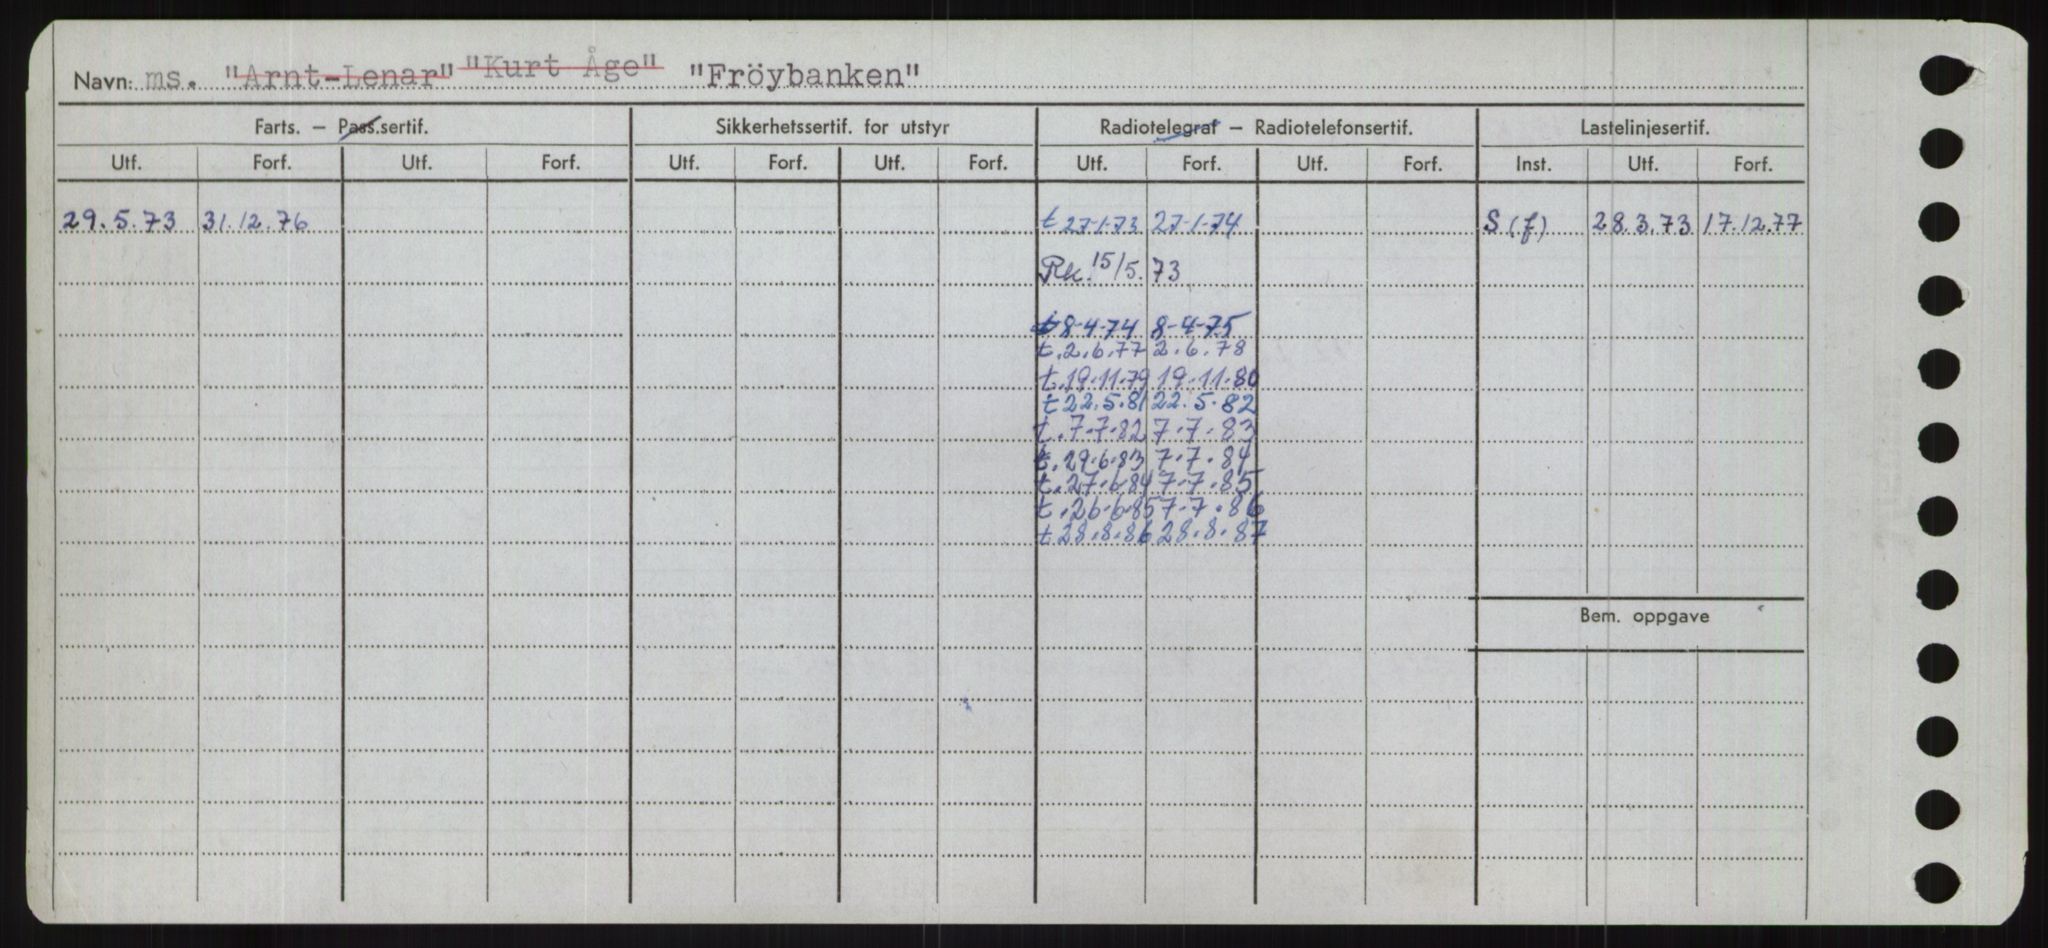 Navn: ms. "Arnt-Lenar" "Kurt Åge" "Fröybanken"
Farts. – Pass.sertif. Sikkerhetssertif. for utstyr Radiotelegraf – Radiotelefonsertif. Lastelinjesertif.
Utf. Forf. Utf. Forf. Utf. Forf. Utf. Forf. Utf. Forf. Utf. Forf. Inst. Utf. Forf.
29.5.73 31.12.76 t 27-1-73 27-1-74 S (f) 28.3.73 17.12.77
Rk. 15/5.73
t 8-4-74 8-4-75
t.2.6.77 2.6.78
t.19.11.79 19.11.80
t 22.5.81 22.5.82
t.7.7.82 7.7.83
t.29.6.83 7.7.84
t.27.6.84 7.7.85
t.26.6.85 7.7.86
t 28.8.86 28.8.87
Bem. oppgave